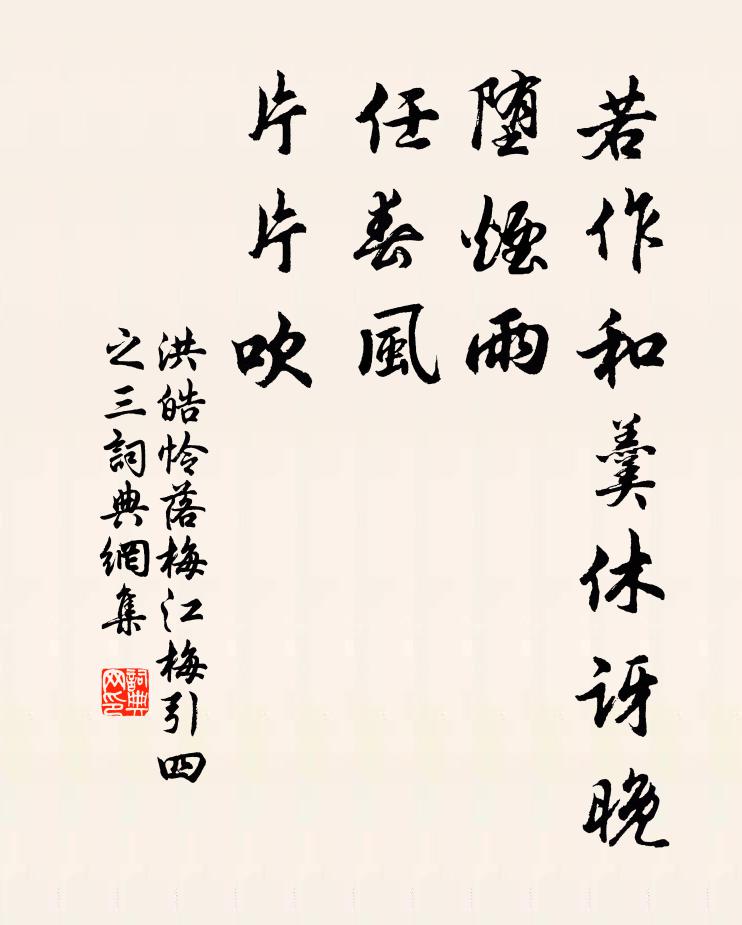 若作和羹休讶晚
堕煙雨
任春風
片片吹
洪皓怜落梅江梅引四
之三詞典網集
詞典网印